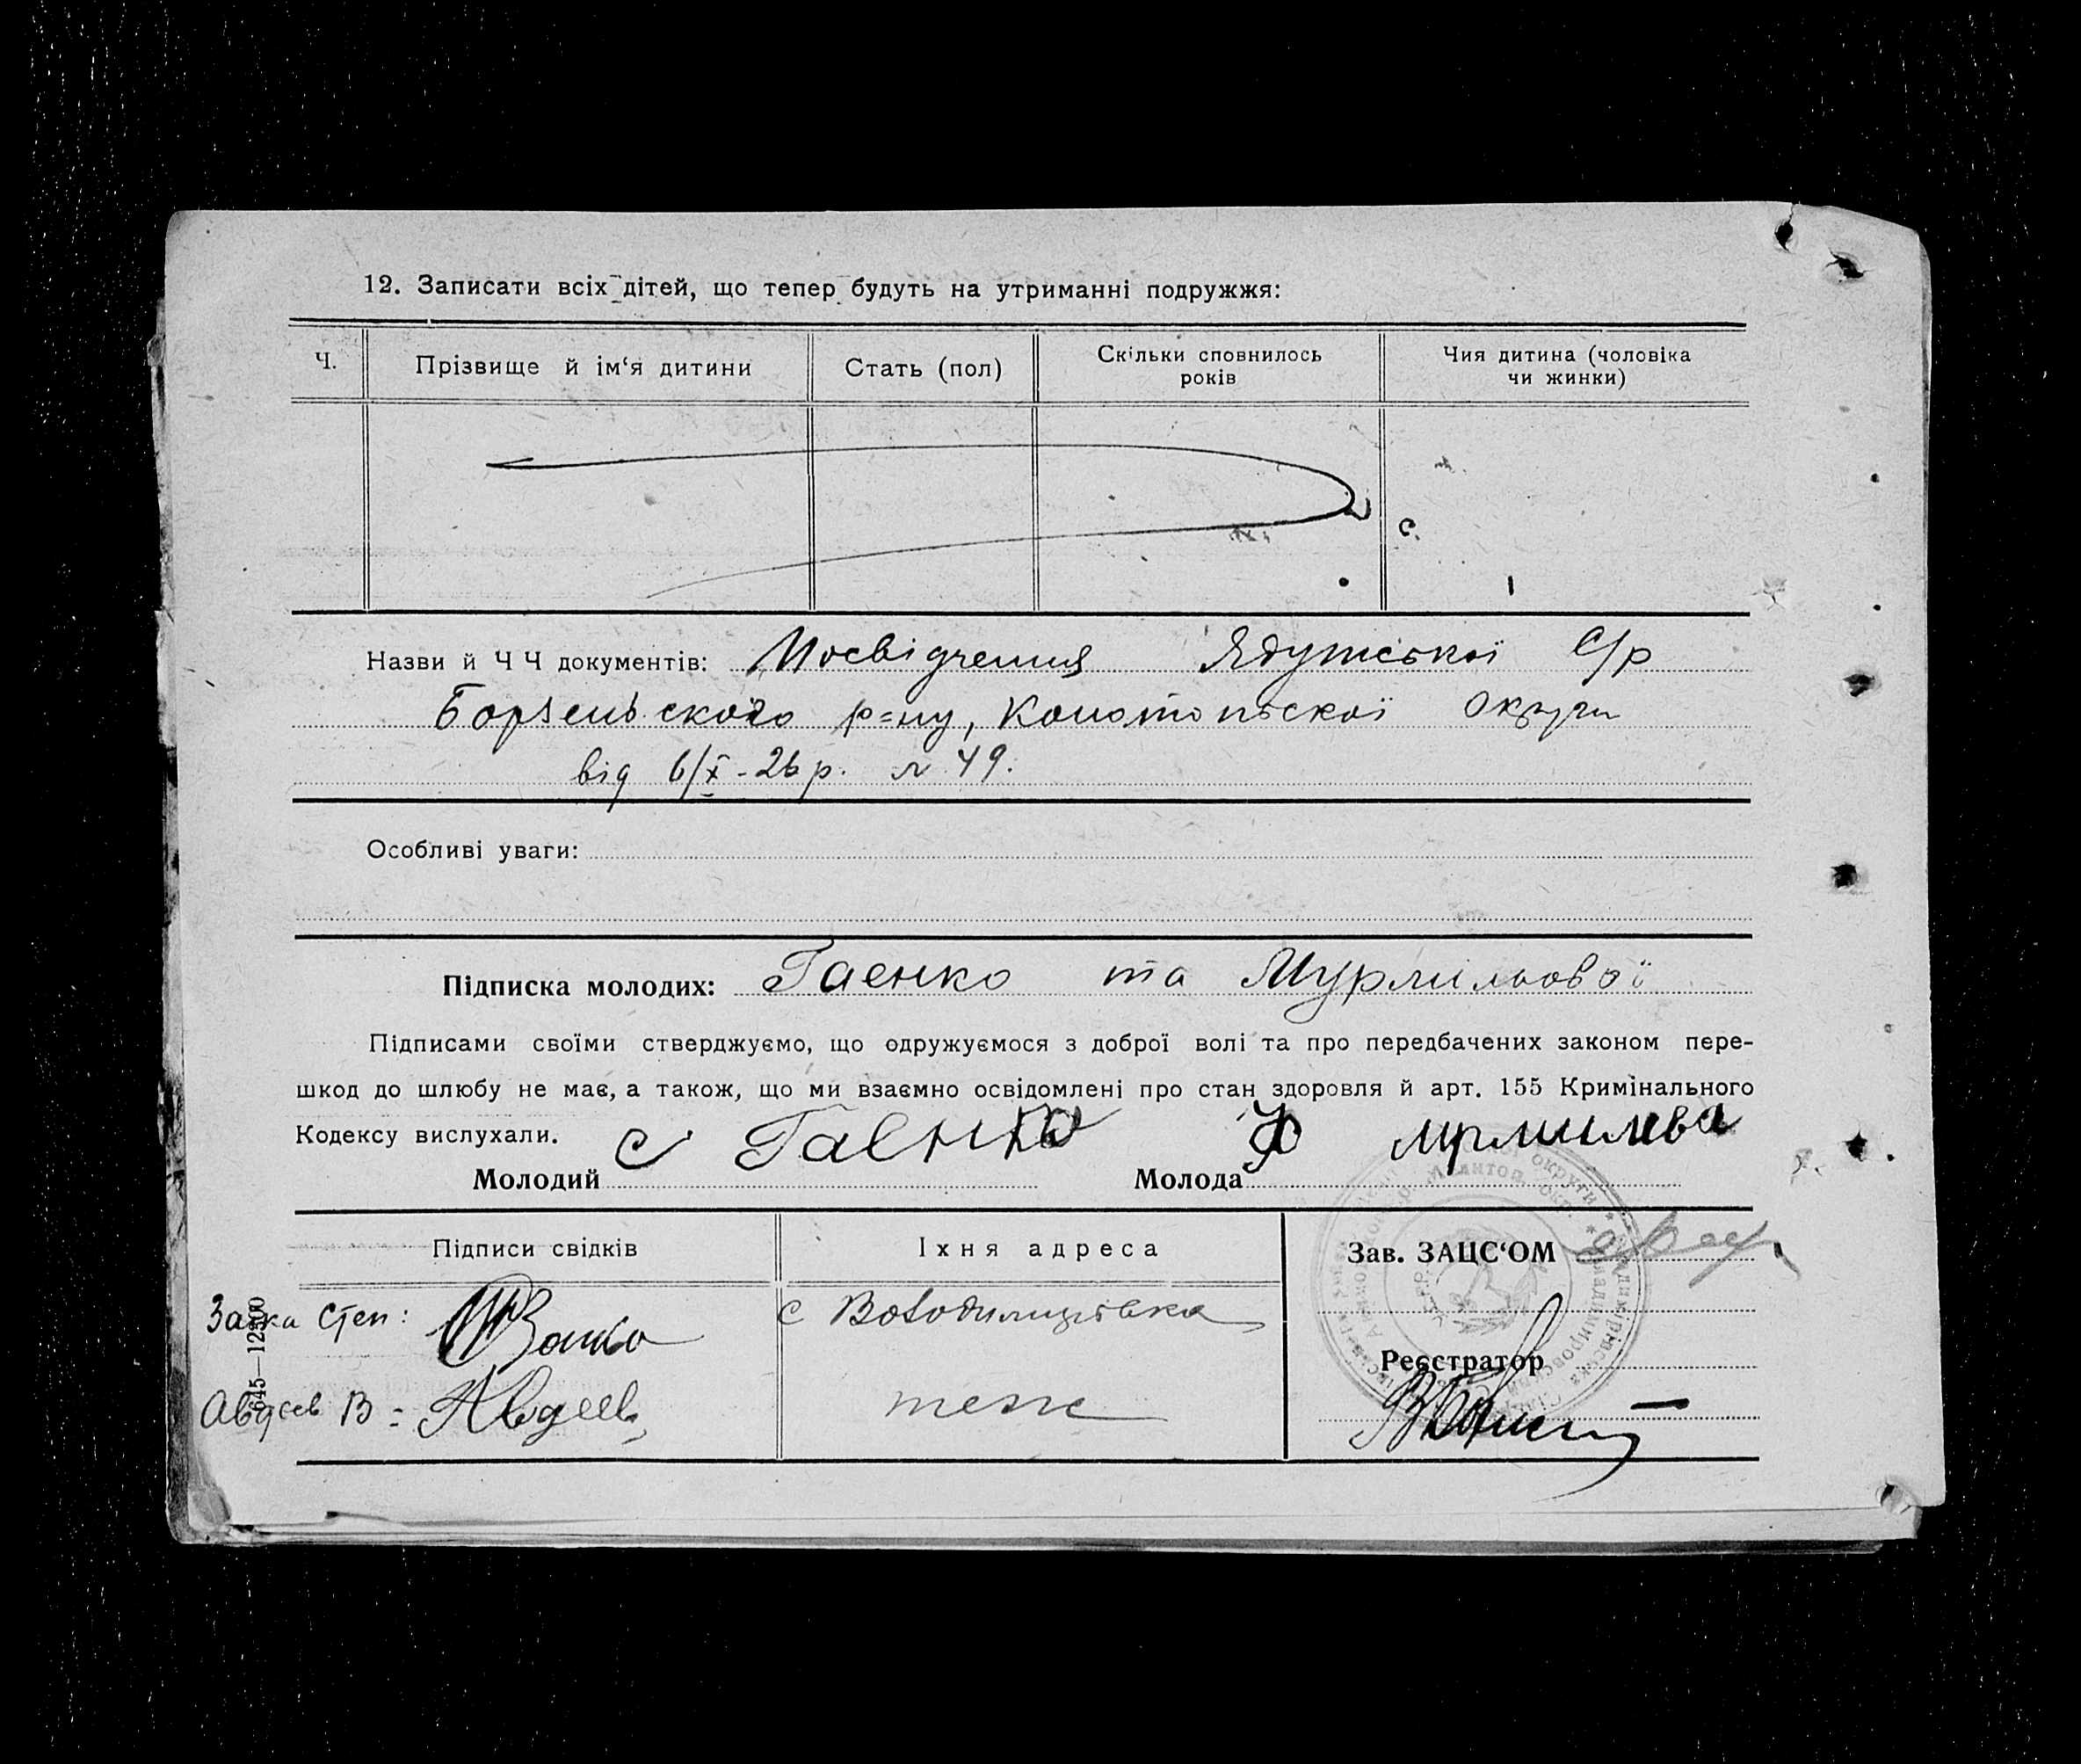 12. Записати всіх дітей, що тепер будуть на утриманні подружжя:
Ч. Прізвище й ім‘я дитини Стать (пол) Скільки сповнилось років Чия дитина (чоловіка чи жинки)
Назви й Ч Ч документів: Посвідчення Ядутської С/р
Борзенського р=ну, Конотопської Округи
від 6/X-26 р. № 49.
Особливі уваги:
Підписка молодих: Гаєнко та Мурмильової
Підписами своїми стверджуємо, що одружуємося з доброї волі та про передбачених законом пере-
шкод до шлюбу не має, а також, що ми взаємно освідомлені про стан здоровля й арт. 155 Кримінального
Кодексу вислухали.
Молодий С Гаєнко Молода
Підписи свідків Їхня адреса Зав. ЗАЦС‘ОМ
Заика Степ: Заика с
Реєстратор
Авдеев В - Авдеев теж